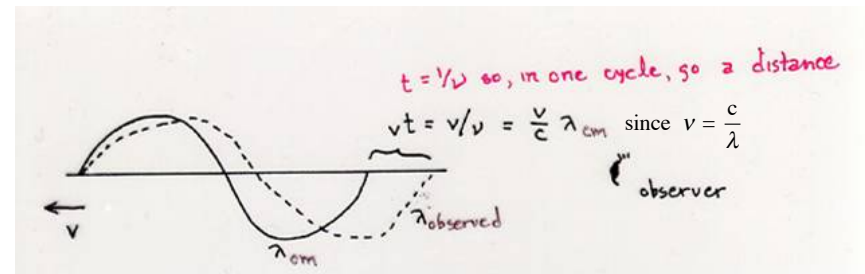 t = 1/ν so, in one cycle, go a distance
vt = v/ν = v/c λem since ν = c/λ
observer
λobserved
v
λem